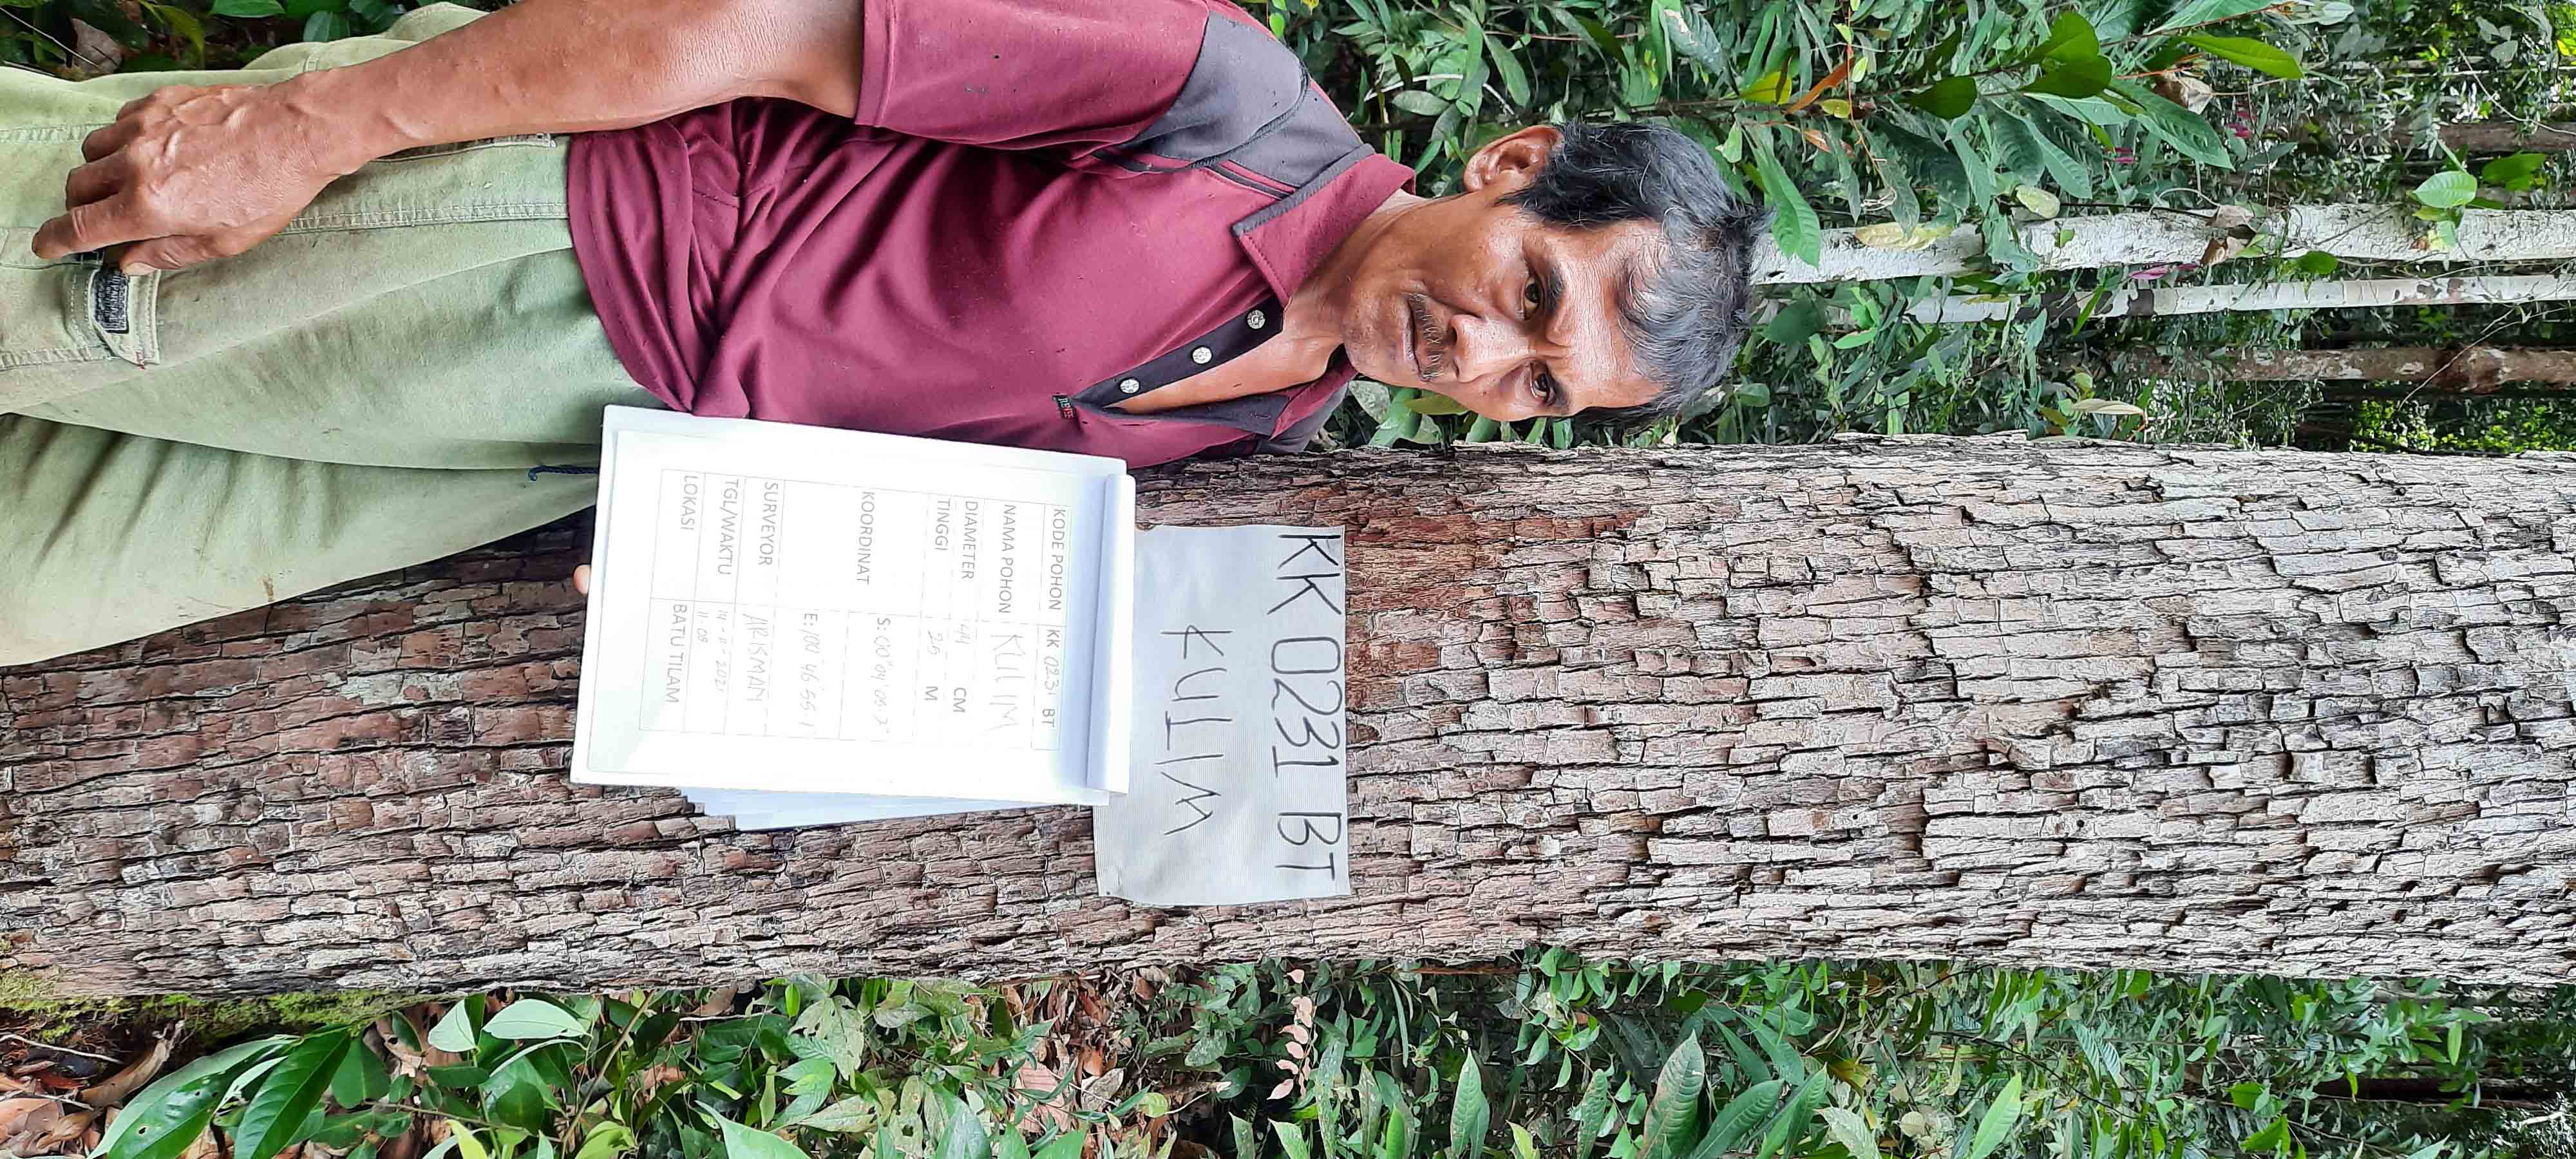 KK 0231 BT
KULIM
KODE POHON KK 0231 BT
NAMA POHON KULIM
DIAMETER CM
TINGGI 20 M
KOORDINAT S:
E: 100 46 55 1
SURVEYOR ARISMAN
TGL/WAKTU
LOKASI BATU TILAM